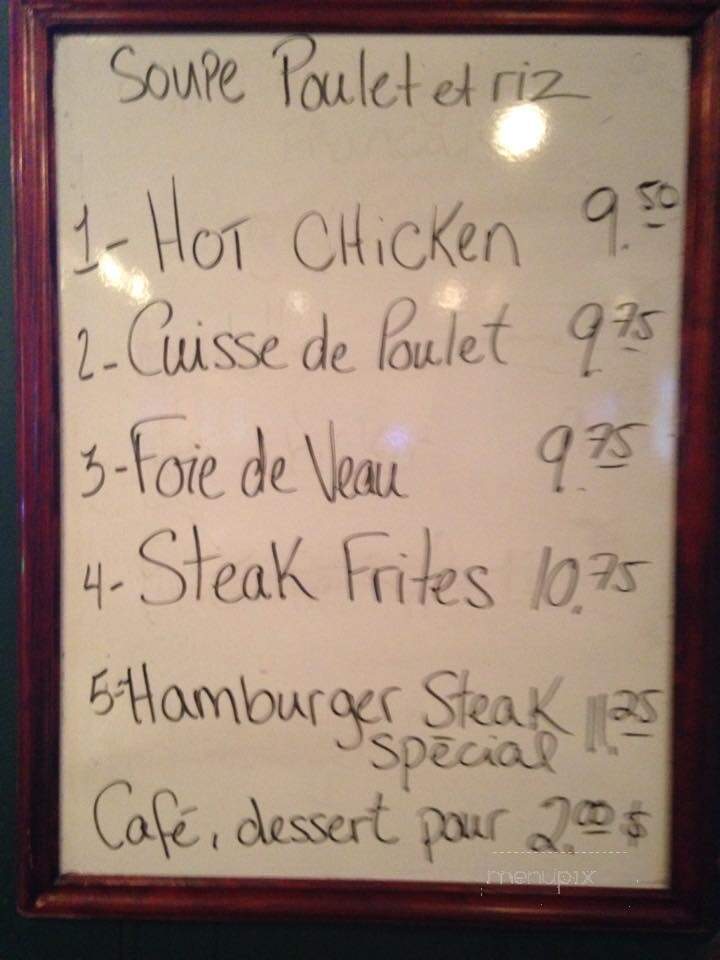 Soupe Poulet et riz
1- Hot Chicken 9.50
2- Cuisse de Poulet 9.75
3- Foie de Veau 9.75
4- Steak Frites 10.75
5- Hamburger Steak 11.25
spécial
Café, dessert pour 2.00 $
menupix